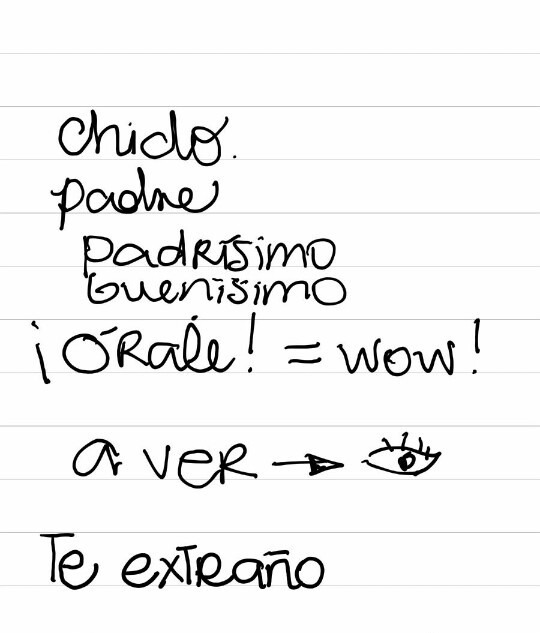 chido.
padre
padrísimo
buenísimo
¡Órale! = wow!
a ver →
Te extraño